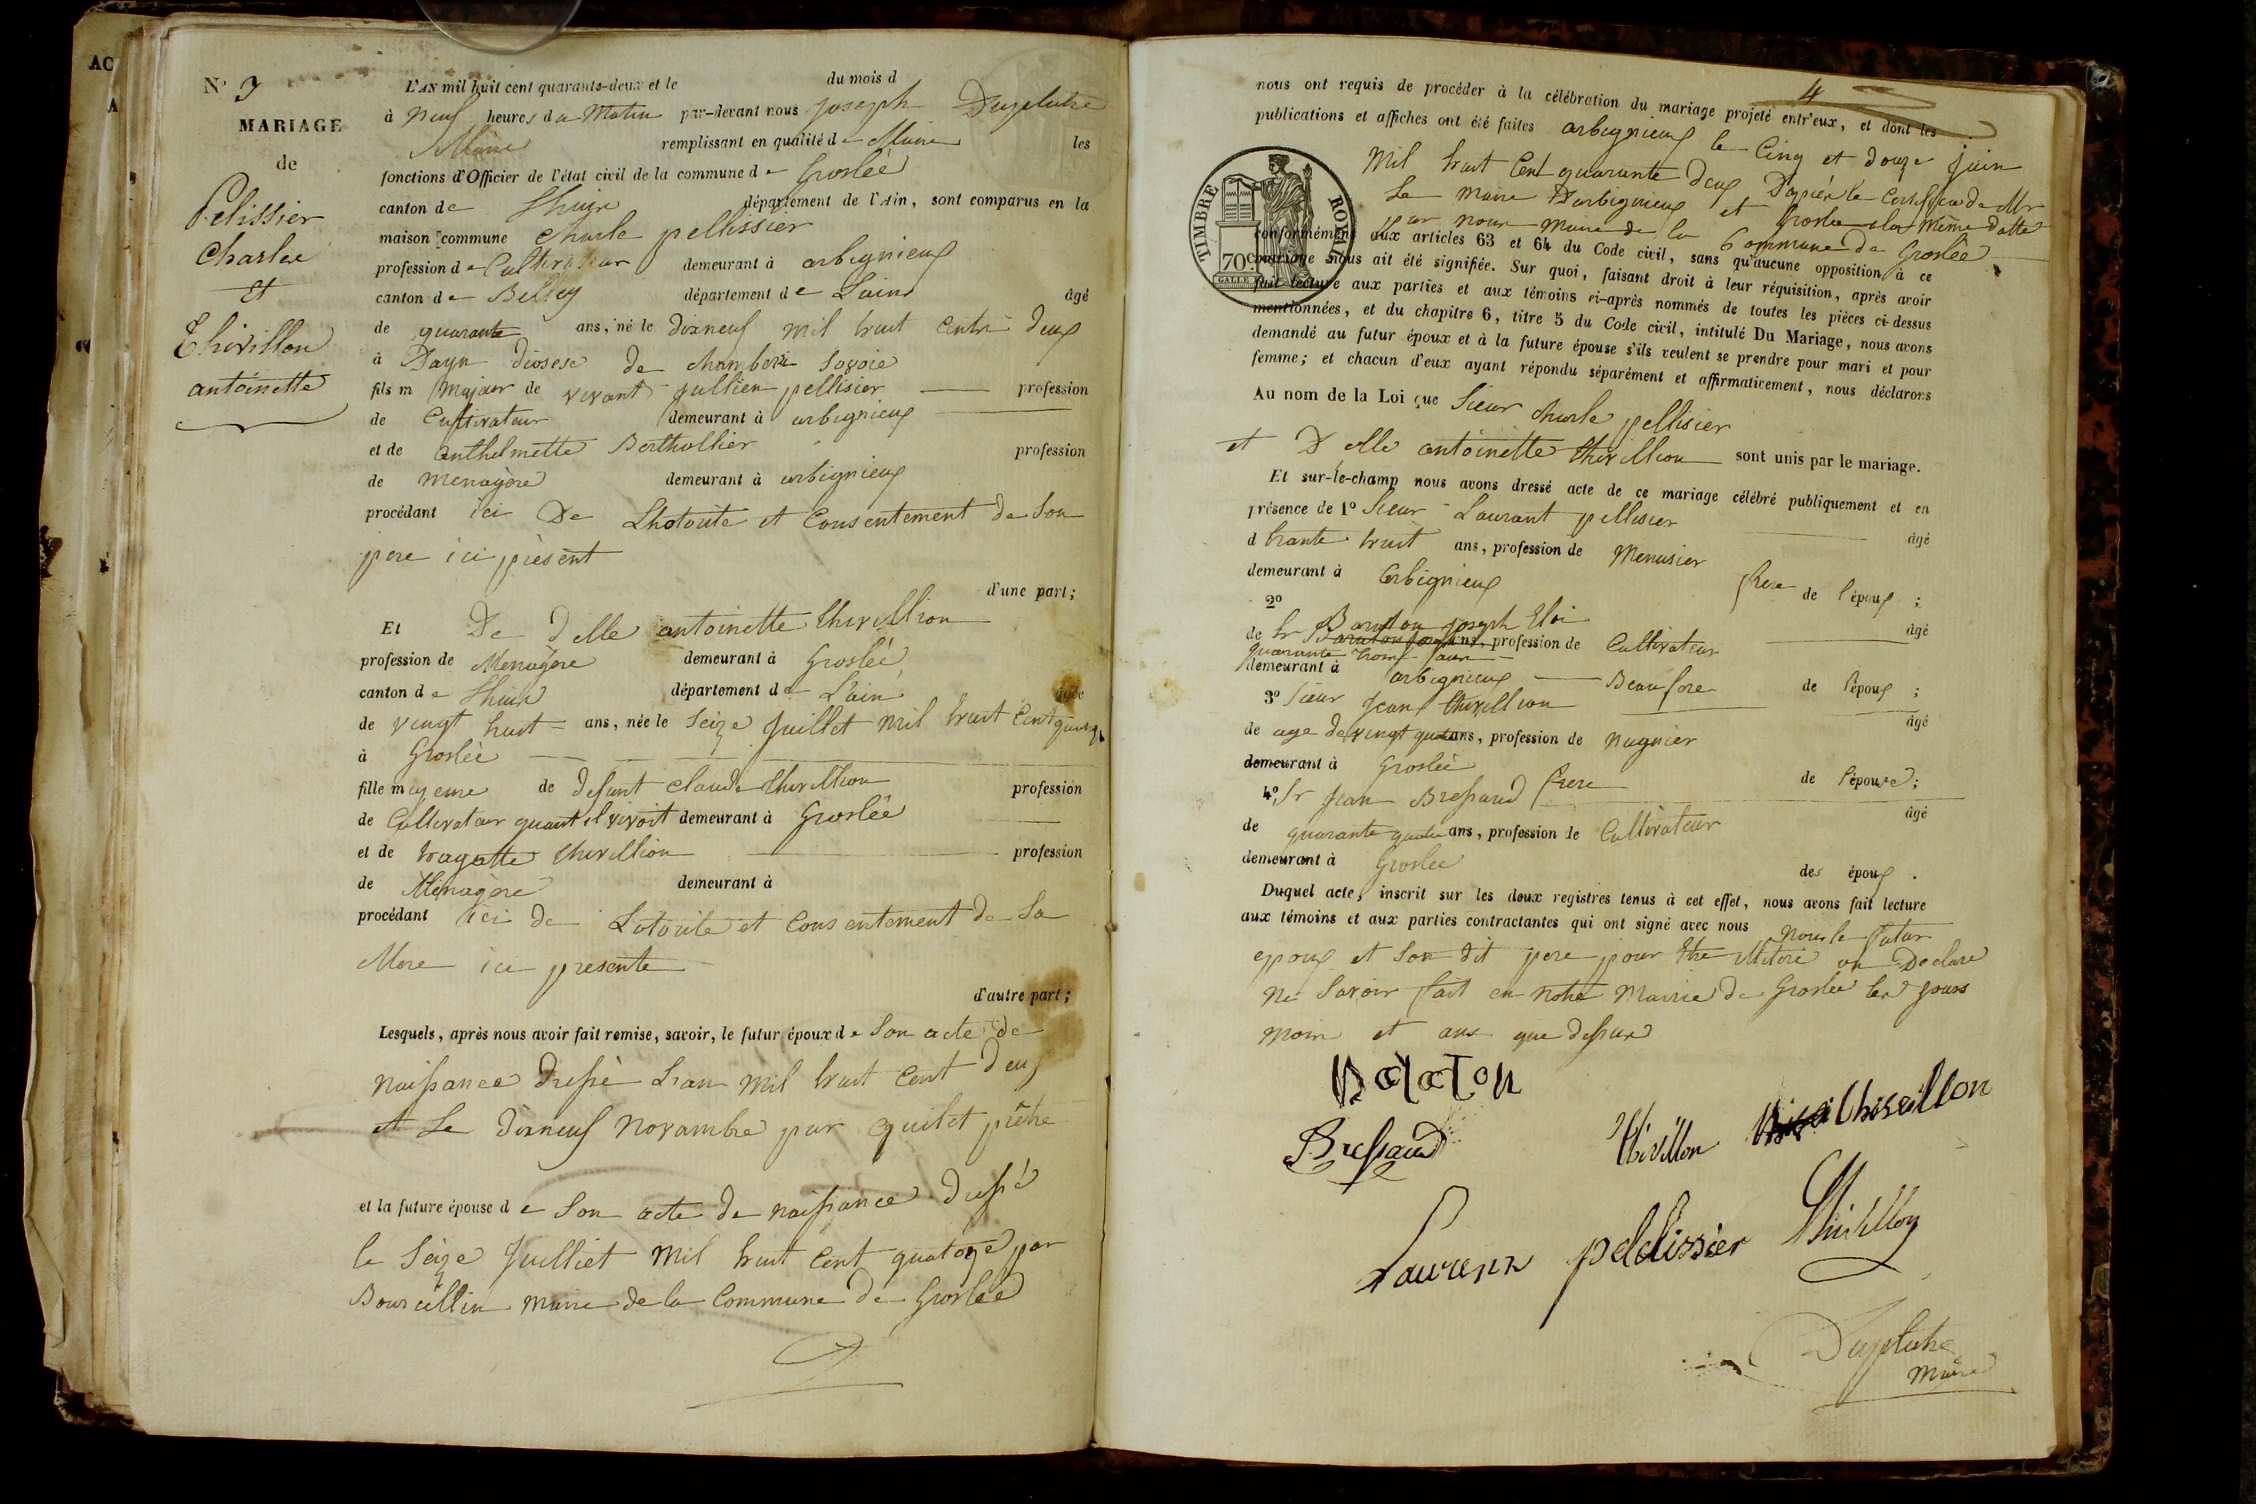 N° 3
MARIAGE
de
Pelissier
Charles
Et
Thivillon
antoinette
L'AN mil huit cent quarante-deux et le du mois d
à neuf heures du Matin par-devant nous joseph Duplutre
Maire remplissant en qualité de Maire les
fonctions d'Officier de l'état civil de la commune de Groslée
canton de Lhuis département de l'Ain, sont comparus en la
maison commune charle pellissier
profession de Cultivateur demeurant à arbignieux
canton de Belley département de Lain âgé
de quarante ans, né le dixneuf mil huit Cents deux
à diosese de chamberi Savoie
fils m Majeur de vivant jullien pellisier profession
de Cultivateur demeurant à arbignieux
et de anthelmette Berthollier profession
de menagère demeurant à arbignieux
procédant ici De Lhotorite et Consentement de Son
pere ici présent
d'une part;
Et De delle antoinette thivillion
profession de Menagère demeurant à Groslée
canton de Lhuis département de Lain âgée
de vingt huit ans, née le Seize Juillet mil huit Cent
à Groslée
fille mageure de defunt claude thivillion profession
de Cultivateur quant il vivoit demeurant à Groslée
et de thivillion profession
de Menagère demeurant à
procédant ici de Lotorite et Consentement de Sa
Mere ici presente
d'autre part;
Lesquels, après nous avoir fait remise, savoir, le futur époux de Son acte de
naissance dressé Lran mil huit Cent deux
et Le dixneuf novambre par prêtre
et la future épouse de Son acte de naissance dressé
le Seize Juilliet mil huit Cent quatorze par
Maire de la Commune de Groslée
4
nous ont requis de procéder à la célébration du mariage projeté entr'eux, et dont les
publications et affiches ont été faites arbignieux le Cinq et douze juin
Mil huit Cent quarante deux Daprés le Certificad de Mr
Le maire Darbignieux et Groslee la même datte
par nous maire de la Commune de Groslée
TIMBRE ROYAL
70c
conformément aux articles 63 et 64 du Code civil, sans qu'aucune opposition à ce
mariage nous ait été signifiée. Sur quoi, faisant droit à leur réquisition, après avoir
fait lecture aux parties et aux témoins ci-après nommés de toutes les pièces ci-dessus
mentionnées, et du chapitre 6, titre 5 du Code civil, intitulé Du Mariage, nous avons
demandé au futur époux et à la future épouse s'ils veulent se prendre pour mari et pour
femme; et chacun d'eux ayant répondu séparément et affirmativement, nous déclarons
Au nom de la Loi que Sieur charle pellisier
et Delle antoinette thivillion sont unis par le mariage.
Et sur-le-champ nous avons dressé acte de ce mariage célébré publiquement et en
présence de 1° Sieur Laurant pellisier âgé
d trante huit ans, profession de Menusier
demeurant à arbignieux frere de l'époux ;
2° Baraton joseph Eloi
de Sr ans, profession de Cultivateur âgé
quarante trois ans
demeurant à arbignieux Beaufrere de l'époux ;
3° Sieur Jean thivillion âgé
de age de vingt ans, profession de
demeurant à Groslée de l'épouse ;
4° Sr Jean Bressand frere
de quarante quatre ans, profession de Cultivateur âgé
demeurant à Groslée des époux .
Duquel acte, inscrit sur les deux registres tenus à cet effet, nous avons fait lecture
aux témoins et aux parties contractantes qui ont signé avec nous nous le futur
epoux et Son dit pere pour Declare
ne Savoir fait en notre Mairie de Groslée les jours
mois et ans que dessus
Bressand
Thivillon
Thivillon
Laurent pellissier
Duplutre
Maire